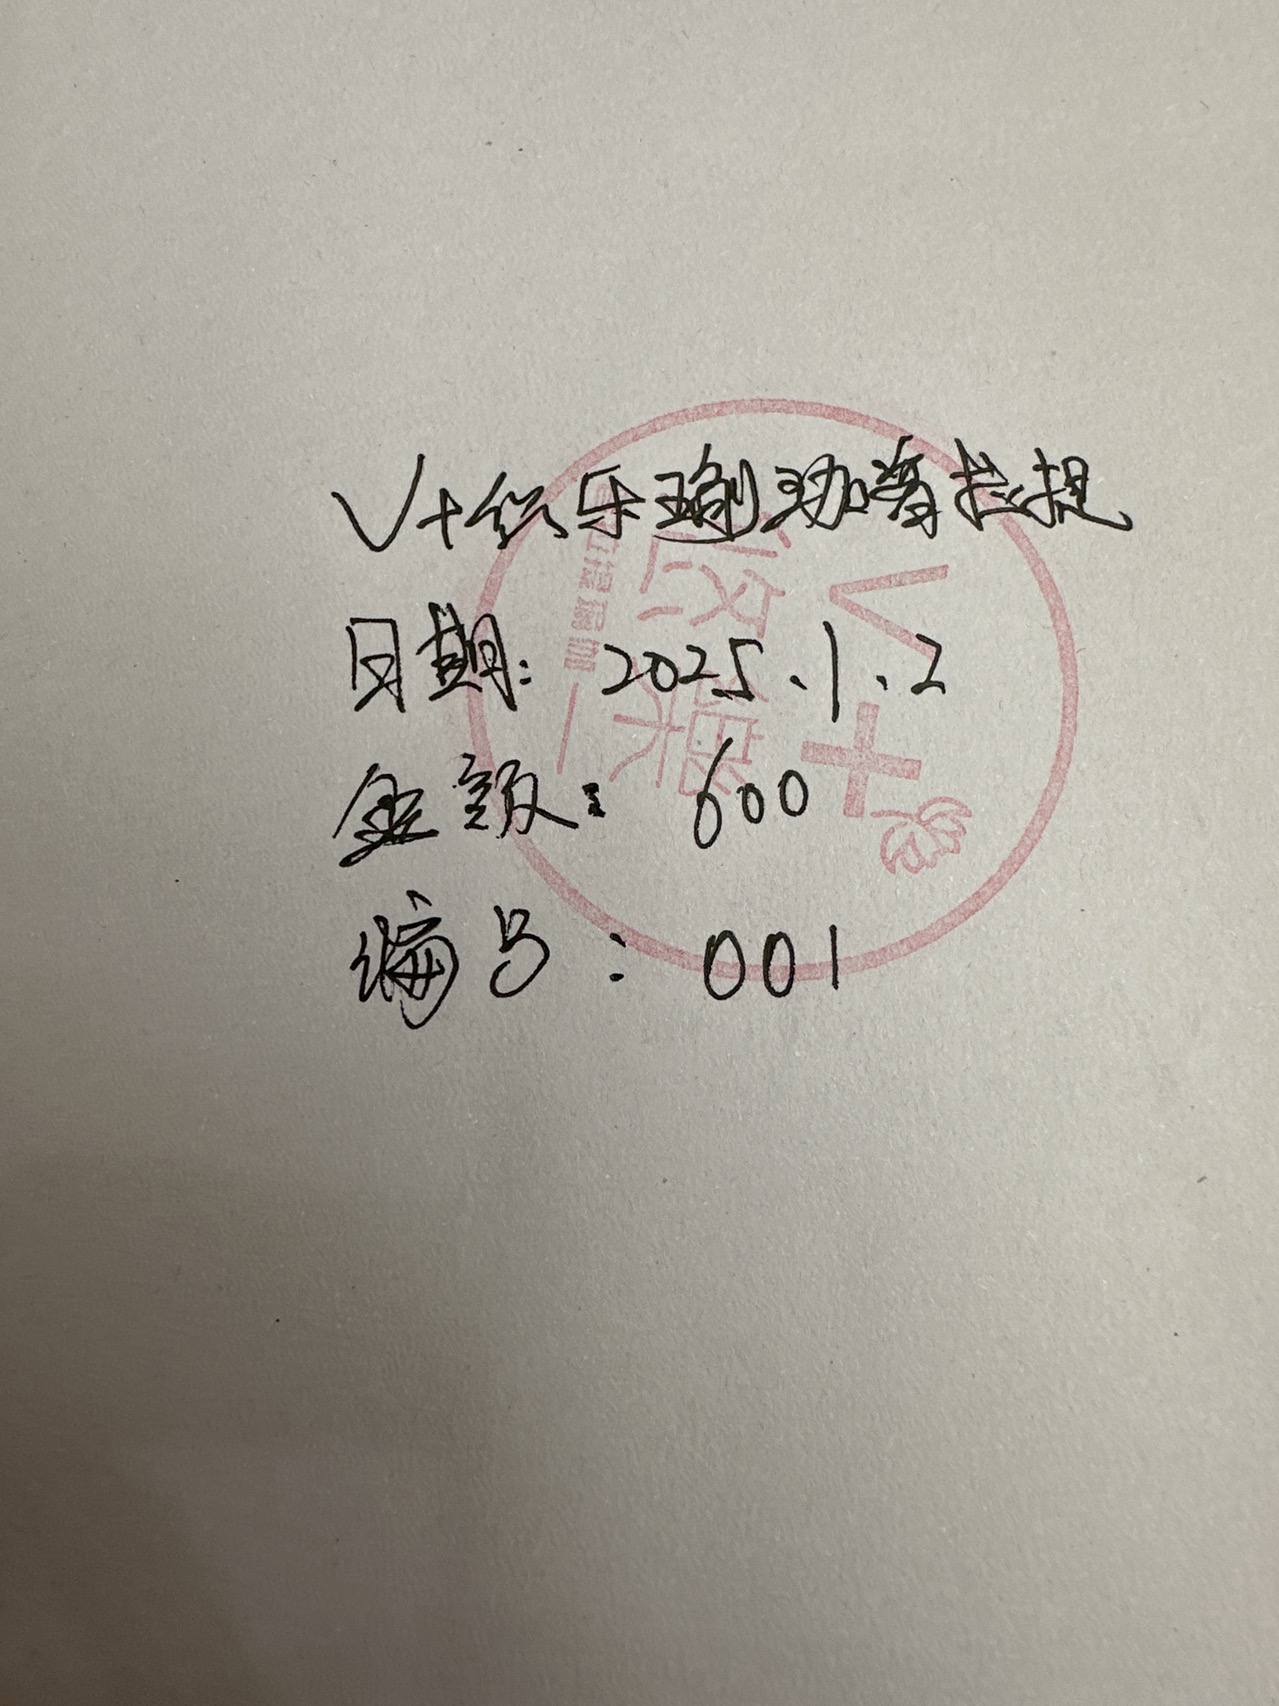 V+悦乐瑜珈普拉提
日期: 2025.1.2
金额: 600
编号: 001
V+